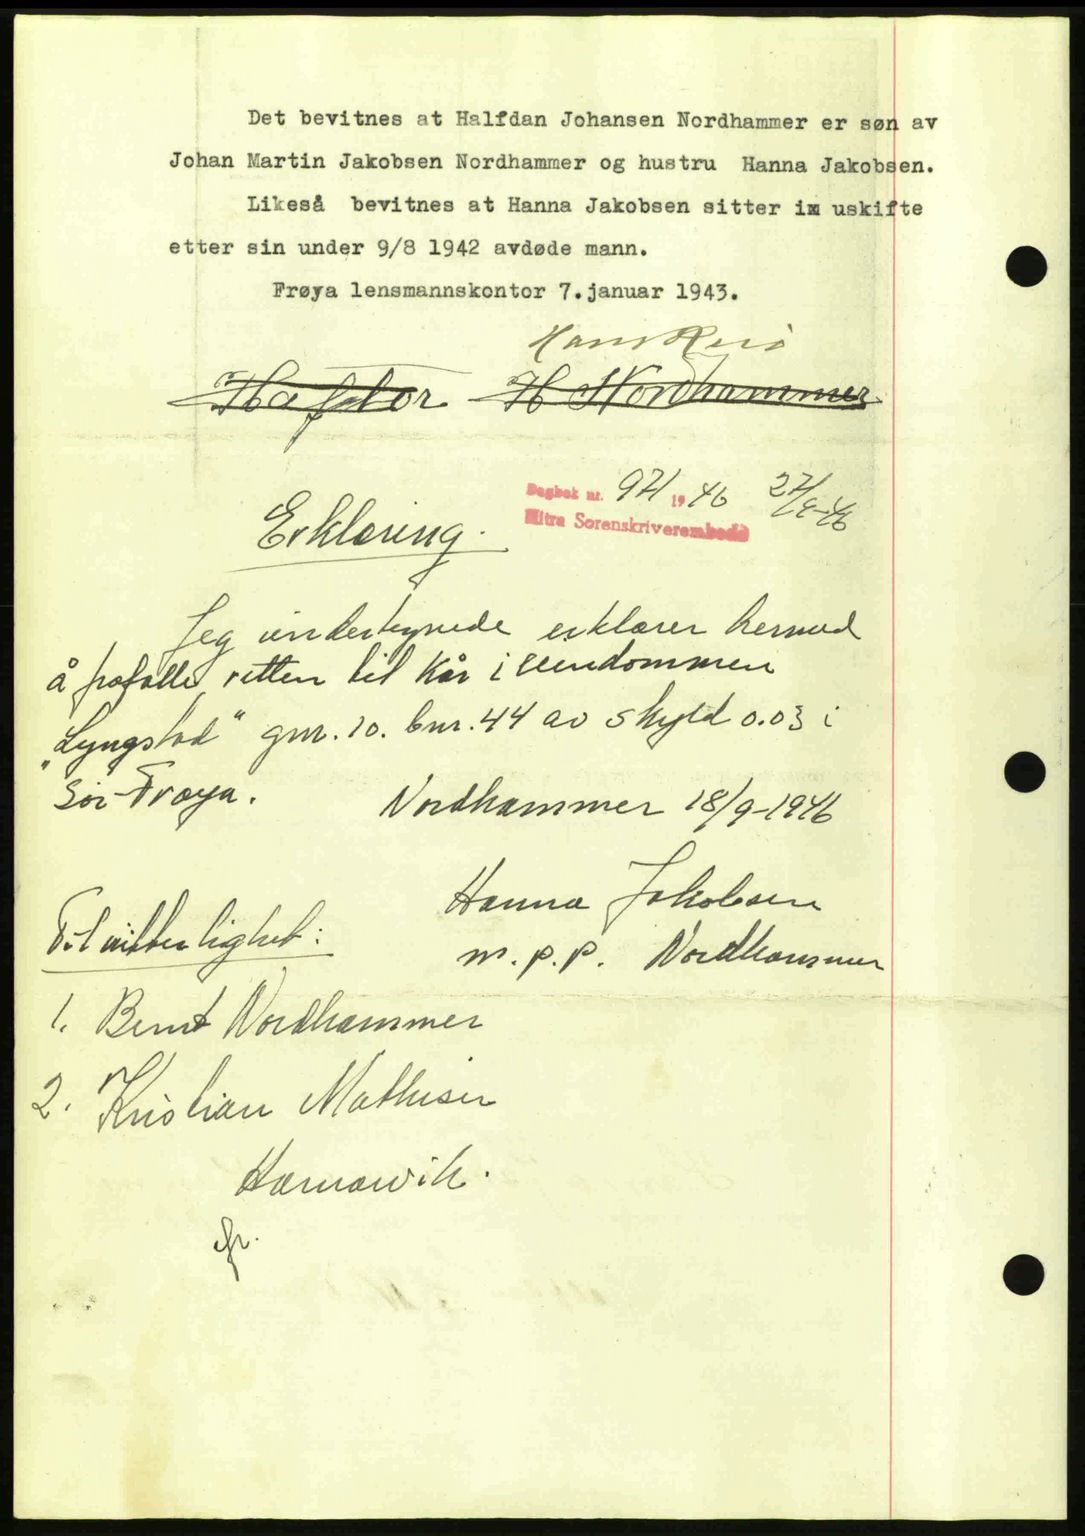 Det bevitnes at Halfdan Johansen Nordhammer er søn av
Johan Martin Jakobsen Nordhammer og hustru Hanna Jakobsen.
Likeså bevitnes at Hanna Jakobsen sitter i uskifte
etter sin under 9/8 1942 avdøde mann.
Frøya lensmannskontor 7.januar 1943.
Hans
H Nordhammer
Dagbok nr. 971 1946 27/9-46
Hitra Sorenskriverembede
Erklæring.
Jeg undertegnede erklærer herved
å frafalle retten til kår i eiendommen
"Lyngstad" gnr. 10. bnr. 44 av skyld 0.03 i
Sør-Frøya.
Nordhammer 18/9-1946
Hanna Jakobsen
m. p. p. Nordhammer
Til vitterlighet:
1. Bernt Nordhammer
2. Kristian Mathisen
Hamarvik.